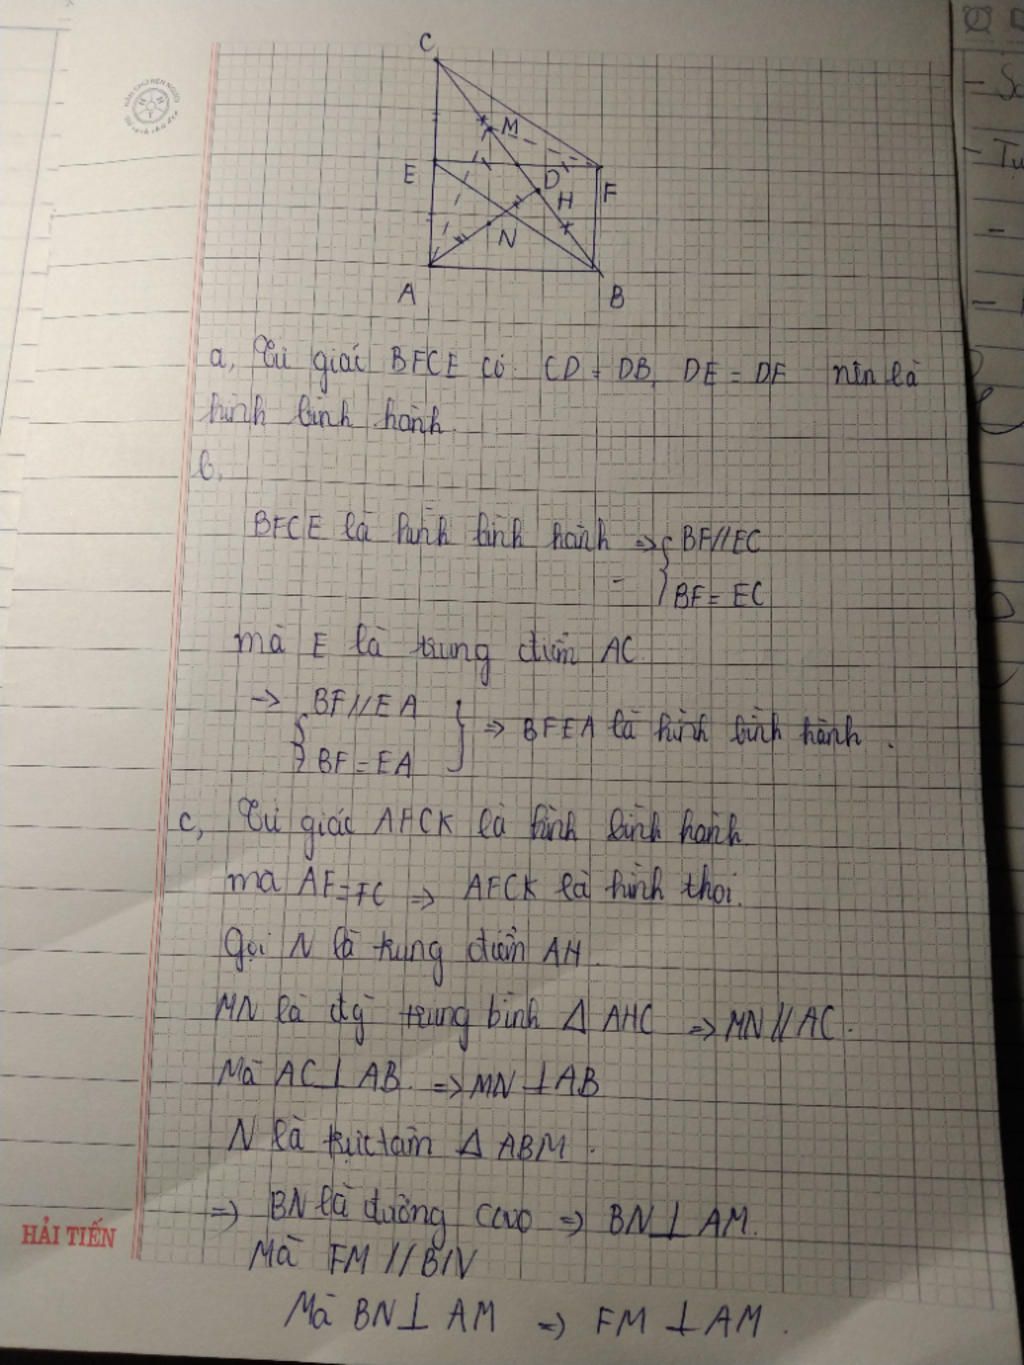 C
M
E
D
F
H
N
A
B
a, Tứ giác BFCE có CD = DB, DE = DF nên là
hình bình hành.
b,
BFCE là hình bình hành => { BF // EC
BF = EC
mà E là trung điểm AC.
-> { BF // EA
BF = EA } => BFEA là hình bình hành.
c, Tứ giác AFCK là hình bình hành
mà AF = FC => AFCK là hình thoi.
Gọi N là trung điểm AH.
MN là đg trung bình Δ AHC => MN // AC.
Mà AC ⊥ AB. => MN ⊥ AB
N là trực tâm Δ ABM.
=> BN là đường cao => BN ⊥ AM.
Mà FM // BN
Mà BN ⊥ AM => FM ⊥ AM.
HẢI TIẾN